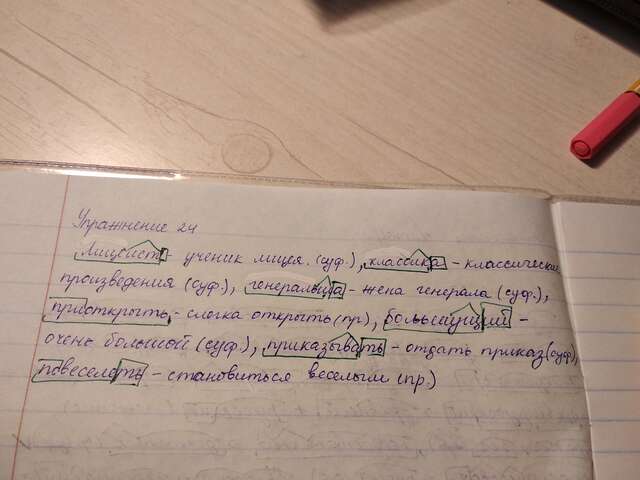 Упражнение 24
Лицеист - ученик лицея (суф.), классика - классические
произведения (суф.), генеральша - жена генерала (суф.),
приоткрыть - слегка открыть (пр), большущий -
очень большой (суф.), приказывать - отдать приказ (суф),
повеселеть - становиться веселым (пр.)